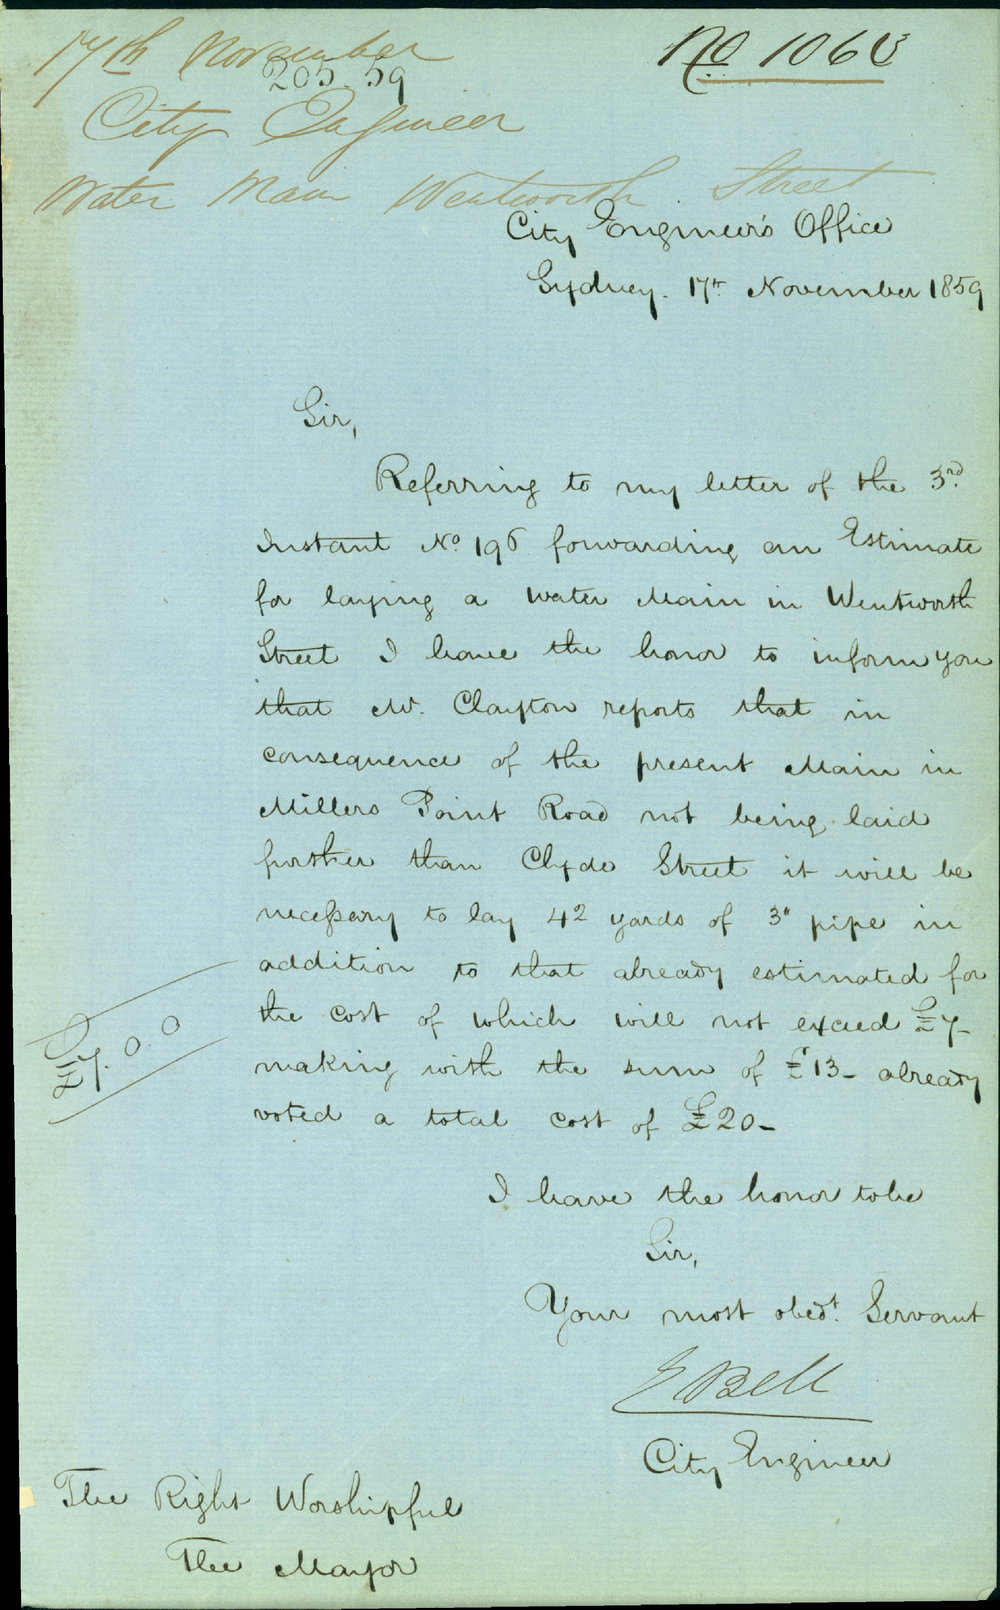 17th November
No 1060
205 59
City Engineer
Water Main Wentworth Street
City Engineer's Office
Sydney. 17th November 1859
Sir,
Referring to my letter of the 3rd
Instant No 196 forwarding an Estimate
for laying a water Main in Wentworth
Street I have the honor to inform you
that Mr. Clayton reports that in
consequence of the present Main in
Millers Point Road not being laid
further than Clyde Street it will be
necessary to lay 42 yards of 3" pipe in
addition to that already estimated for
the cost of which will not exceed £7-
£7.0.0
making with the sum of £13- already
voted a total cost of £20-
I have the honor to be
Sir,
Your most obedt. Servant
E Bell
City Engineer
The Right Worshipful
The Mayor